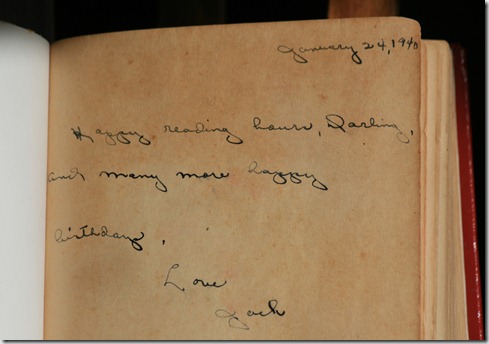 January 24, 1940
Happy reading hours, Darling,
and many more happy
birthdays.
Love
Jack